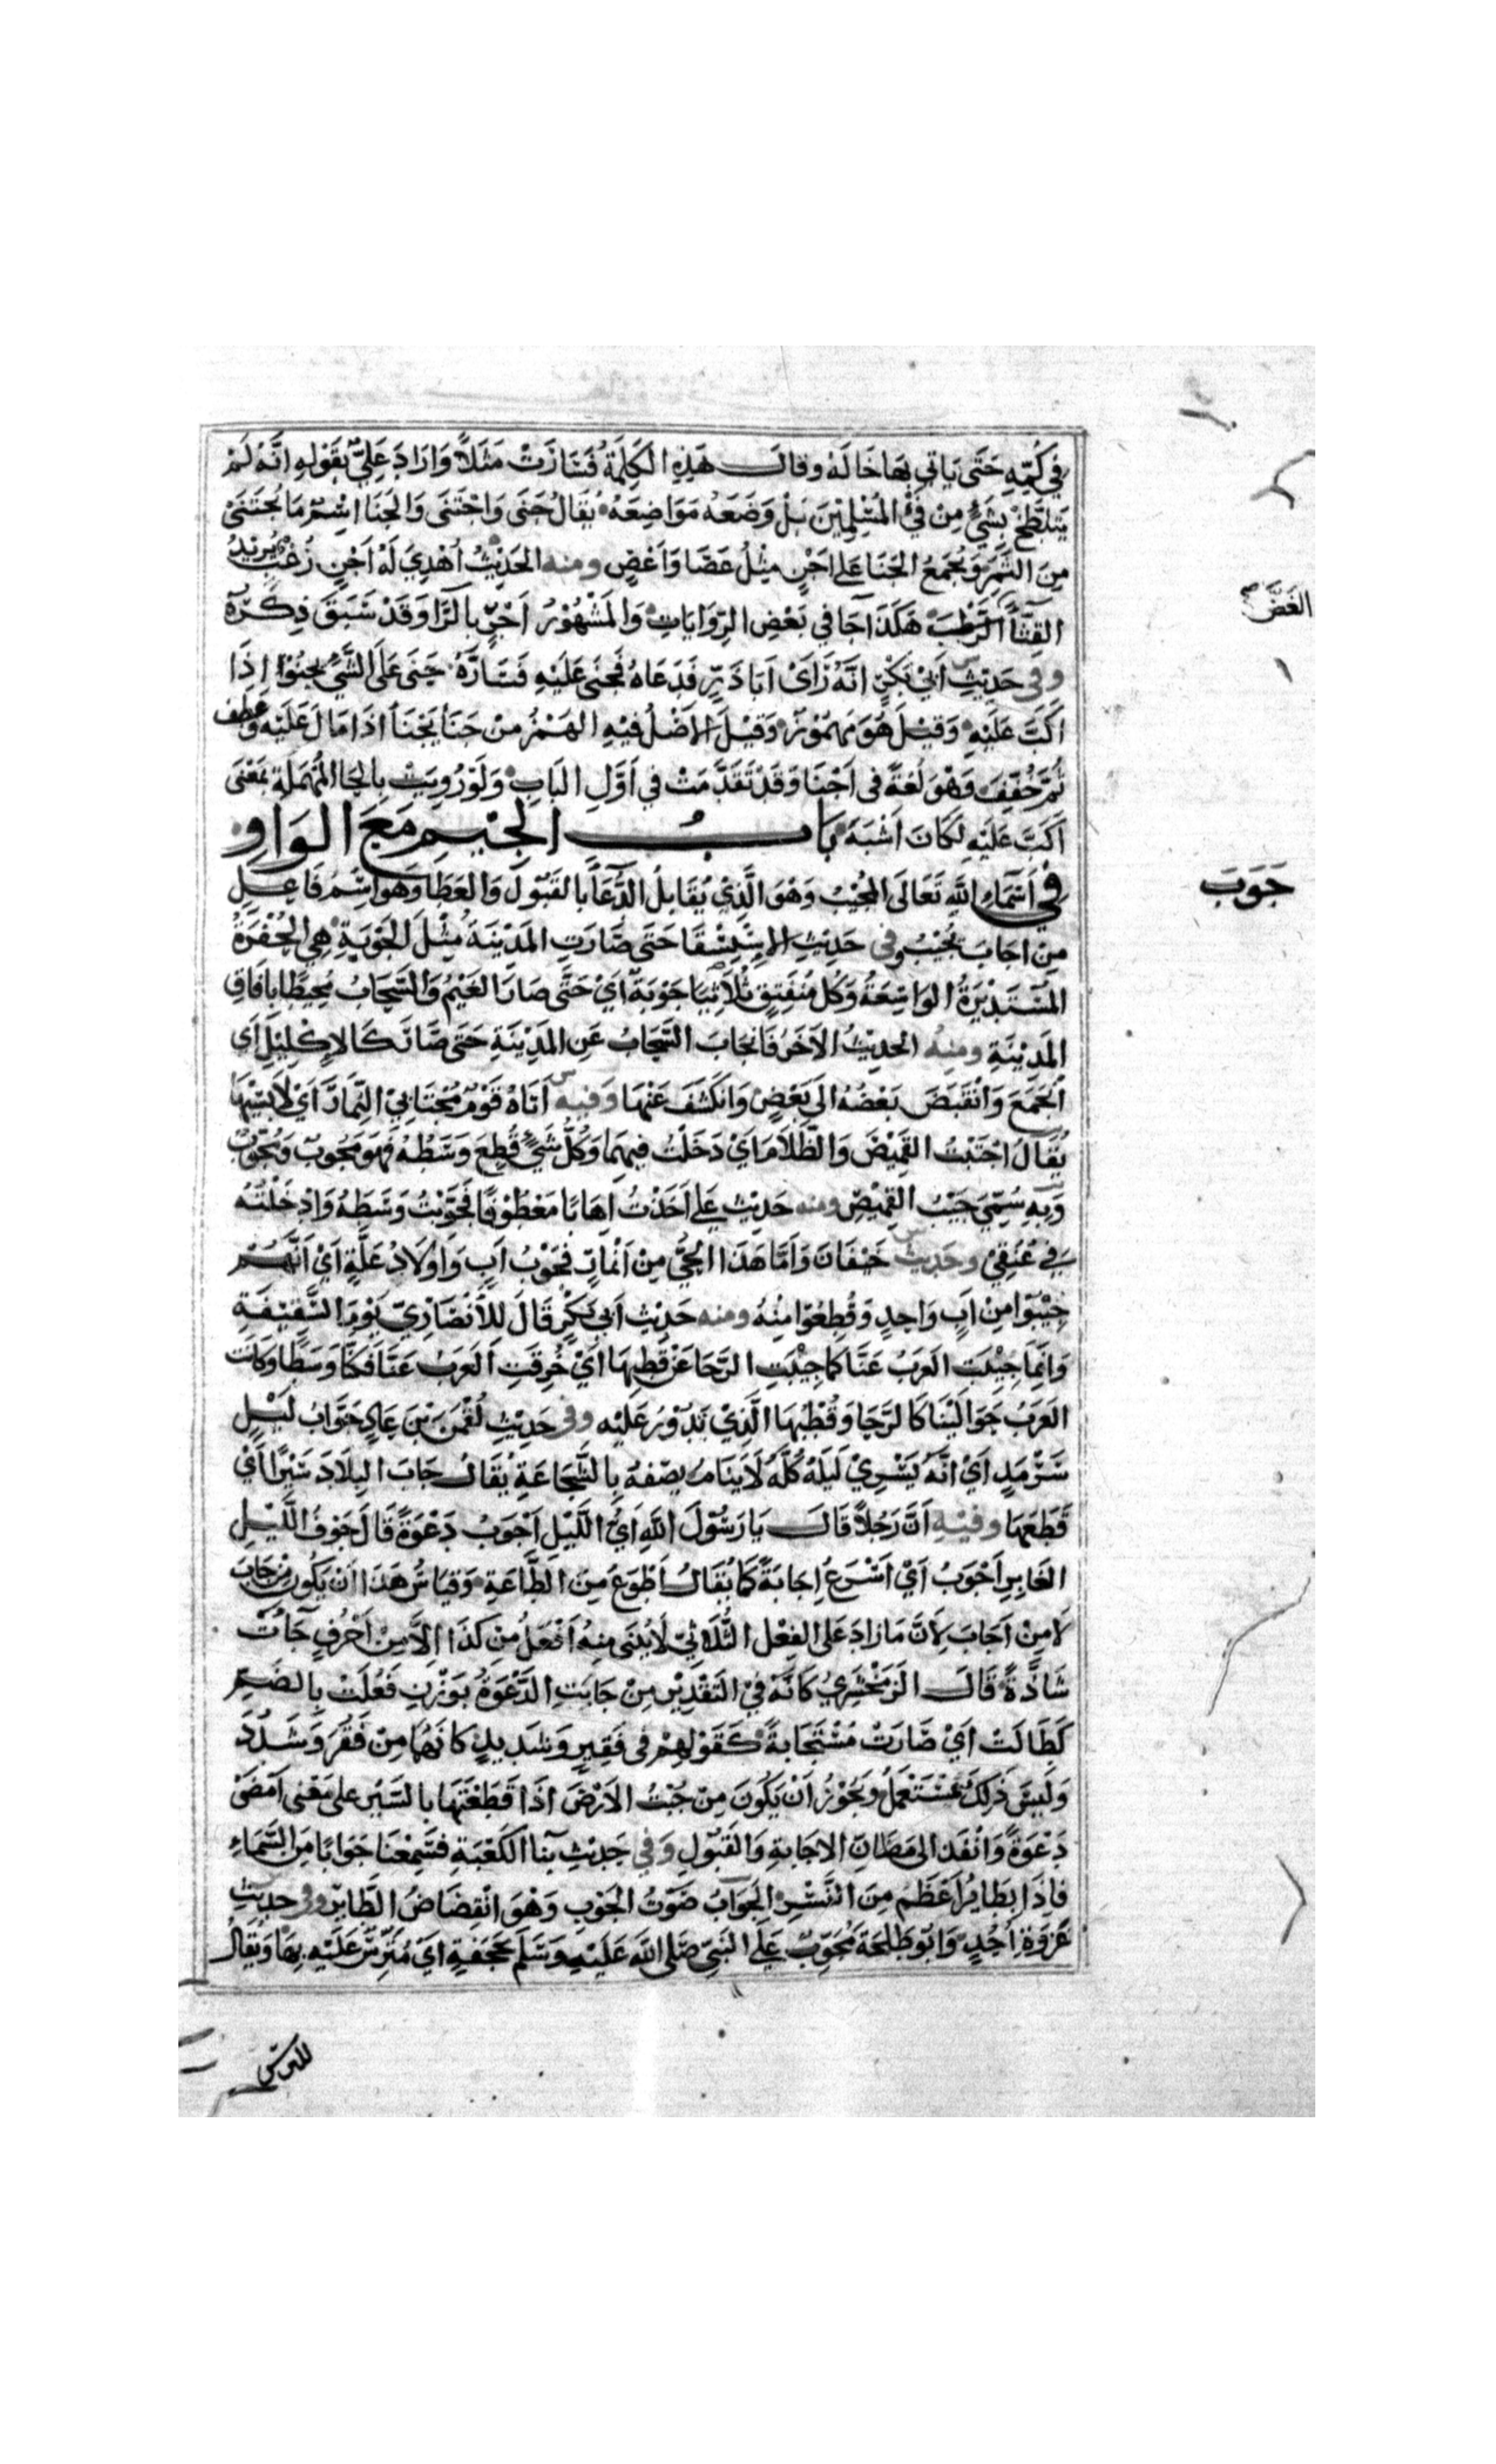 في كُمِّهِ حَتَى يَاتي بِهَا خَالَهُ وقالَ هَذِهِ الكَلِمَةُ فَسَارَتْ مَثَلاً وَارَادَ عَلِيٌّ بِقَوْلِهِ انَّهُ لَمْ
يَتَلَطَّخْ بِشَيْءٍ مِن فَيْءِ المُسْلِمِيْنَ بَلْ وَضَعَهُ مَوَاضِعَهُ يُقَالُ جَنَى وَاجْتَنَى وَالجَنَا اسْمُ مَا يُجْتَنَى
مِنَ الثَّمَرِ وَيُجْمَعُ الجَنَا عَلى اَجْنٍ مِثْلُ عَصًا وَاَعْصٍ ومنه الحَدِيْثُ اُهْدِيَ لَهُ اَجْنٍ زُغْبٌ يُرِيْدُ
القِثَّا الرَّطْبَ هَكَذَا جَا في بَعْضِ الرِّوَايَاتِ وَالمَشْهُوْرُ اَجْرٍ بِالرَّا وَقَدْ سَبَقَ ذِكْرُهُ
وفي حَدِيْثِ اَبي بَكْرٍ انَّهُ رَاَى اَبَا ذَرٍّ فَدَعَاهُ فَجَنَى عَلَيْهِ فَسَارَّهُ جَنَى عَلَى الشَّيْ يَجْنُوْا اِذَا
اَكَبَّ عَلَيْهِ وَقِيْلَ هُوَ مَهمُوْزٌ وَقِيْلَ الاَصْلُ فيْهِ الهَمْزُ مِنْ جَنَأَ يَجْنَأُ اذَا مَالَ عَلَيْهِ وعَطَفَ
ثُمَّ خُفِّفَ وَهْوَ لُغَةٌ في اَجْنَا وَقَدْ تَقَدَّمَتْ في اَوَّلِ البَابِ وَلَوْ رُوِيَتْ بِالحَا المُهْمَلَةِ بمَعْنَى
اَكَبَّ عَلَيْهِ لَكَانَ اَشْبَهَ بَابُ الجِيْمِ مَعَ الوَاوِ
في اَسْمَاءِ اللهِ تَعَالَى المُجِيْبُ وَهْوَ الَّذِيْ يُقَابِلُ الدُّعَا بِالقَبُوْلِ وَالعَطَا وَهْوَ اسْمُ فَاعِلٍ
مِنْ اجَابَ يُجِيْبُ وفي حَدِيْثِ الاِسْتِسْقَا حَتَى صَارَتِ المَدِيْنَةُ مِثْلَ الجَوْبَةِ هِيَ الحُفْرَةُ
المُسْتَدِيْرَةُ الوَاسِعَةُ وَكُلُّ مُنْفَتِقٍ بِلاَ بِنَا جَوْبَةٌ اَيْ حَتَّى صَارَ الغَيْمُ وَالسَّحَابُ مُحِيْطًا بِافَاقِ
المَدِيْنَةِ ومنه الحدِيْثُ الآخَرُ فَانجَابَ السَّحَابُ عَنِ المَدِيْنَةِ حَتَى صَارَ كَالاِكْلِيْلِ اَي
انْجَمَعَ وَانْقَبَضَ بَعْضُهُ الَى بَعْضٍ وَانكَشَفَ عَنْهَا وَفيه اَتَاهُ قَوْمٌ مُجْتَابي النِّمَارِ اَيْ لاَبِسِيْهَا
يُقَالُ اجْتَبْتُ القَمِيْصَ وَالظَّلاَمَ اَيْ دَخَلْتُ فِيهِمَا وَكُلُّ شَيْءٍ قُطِعَ وَسَطُهُ فَهوَ مَجُوْبٌ وَمُجَوَّبٌ
وَبِهِ سُمِّيَ جَيْبُ القَمِيْصِ ومنه حَدِيْثِ عَلي اَخَذْتُ اهَابًا مَعْطُوْنًا فَجَوَّبْتُ وَسَطَهُ وَادْخَلْتُهُ
في عُنُقِيْ وحَدِيث خَيْفَانَ وَاَمَّا هَذَا الحَيُّ مِنْ اَنْمَارٍ فَجَوْبُ اَبٍ وَاَوْلاَدُ عَلَّةٍ اَيْ اَنَّهُمْ
جِيْبُوْا مِنْ اَبٍ وَاحِدٍ وَقُطِعُوْا مِنْهُ ومنه حَدِيْثِ اَبي بَكْرٍ قَالَ لِلاَنْصَارِيِّ يَوْمَ السَّقِيْفَةِ
وَانَّمَا جِيْبَتِ العَرَبُ عَنَّا كمَا جِيْبَتِ الرَّحَا عَنْ قُطْبِهَا اَيْ خُرِقَتِ العَرَبُ عَنَّا فَكُنَّا وَسَطًا وَكانَت
العَرَبُ حَوَالَيْنَا كَالرَّحَا وَقُطْبُهَا الَّذِيْ تَدُوْرُ عَلَيْهِ وفي حَدِيْثِ لُقْمَنَ بْنِ عَادٍ جَوَّابُ لَيْلٍ
سَرْمَدٍ اَيْ انَّهُ يَسْرِيْ لَيْلَهُ كُلَّهُ لاَ يَنَامُ يصِفهُ بِالشَّجَاعَةِ يُقَالُ جَابَ البِلاَدَ سَيْرًا اَيْ
قَطَعَهَا وفيْهِ اَنَّ رَجُلاً قَالَ يَا رَسُوْلَ اللهِ اَيُّ اللَّيْلِ اَجْوَبُ دَعْوَةً قَالَ جَوْفُ اللَّيْلِ
الغَابِرِ اَجْوَبُ اَيْ اَسْرَعُ اِجَابَةً كَمَا يُقَالُ اَطْوَعُ مِنَ الطَّاعَةِ وَقِيَاسُ هَذَا اَنْ يَكُوْنَ مِنْ جَابَ
لاَ مِنْ اَجَابَ لاَنَّ مَا زَادَ عَلَى الفِعْلِ الثُّلاَثيِّ لاَ يُبْنَى مِنْهُ اَفْعَلُ مِن كَذَا الاَّ مِنْ اَحْرُفٍ جَاءَتْ
شَاذَّةً قَالَ الزَّمَخْشَرِيُ كَانَّهُ فيْ التَقْدِيْرِ مِنْ جَابَتِ الدَّعْوَةُ بوَزْنِ فَعُلَتْ بِالضَمِّ
كَطَالَتْ اَيْ صَارَتْ مُسْتَجَابَةً كَقَوْلِهِمْ في فَقِيرٍ وَشَدِيدٍ كانَهُمَا مِنْ فَقُرَ وَشَدُدَ
وَلَيْسَ ذَلِكَ بمُسْتَعْمَلٍ وَيَجُوْزُ اَنْ يَكُوْنَ مِنْ جُبْتُ الاَرْضَ اذَا قَطَعْتَهَا بالسَيْرِ على مَعْنى اَمْضَى
دَعْوَةً وَانْفَذَ الى مَظَانّ الاجَابَةِ وَالقَبُوْلِ وَفي حَدِيْثِ بِنَا الكَعْبَةِ فَسَمِعْنَا جَوَابًا مِنَ السَّمَاءِ
فَاِذَا بِطَائِرٍ اَعْظَمَ مِنَ النَّسْرِ الجَوَابُ صَوْتُ الجَوْبِ وَهْوَ انْقِضَاضُ الطَّايِرِ وفي حدِيْثِ
غَزْوَةِ اُحُدٍ وَابُو طَلْحَةَ مُجَوِّبٌ عَلَى النَبِيّ صَلَّى اللهُ عَلَيْهِ وَسَلَّمَ بحَجَفَةٍ اَيْ مُتَرِّسٌ عَلَيْهِ بِهَا وَيُقَالُ
الغَضّ
جَوَبَ
للترس